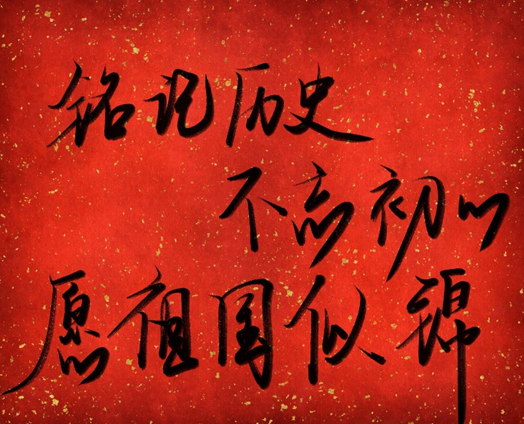 铭记历史
不忘初心
愿祖国似锦